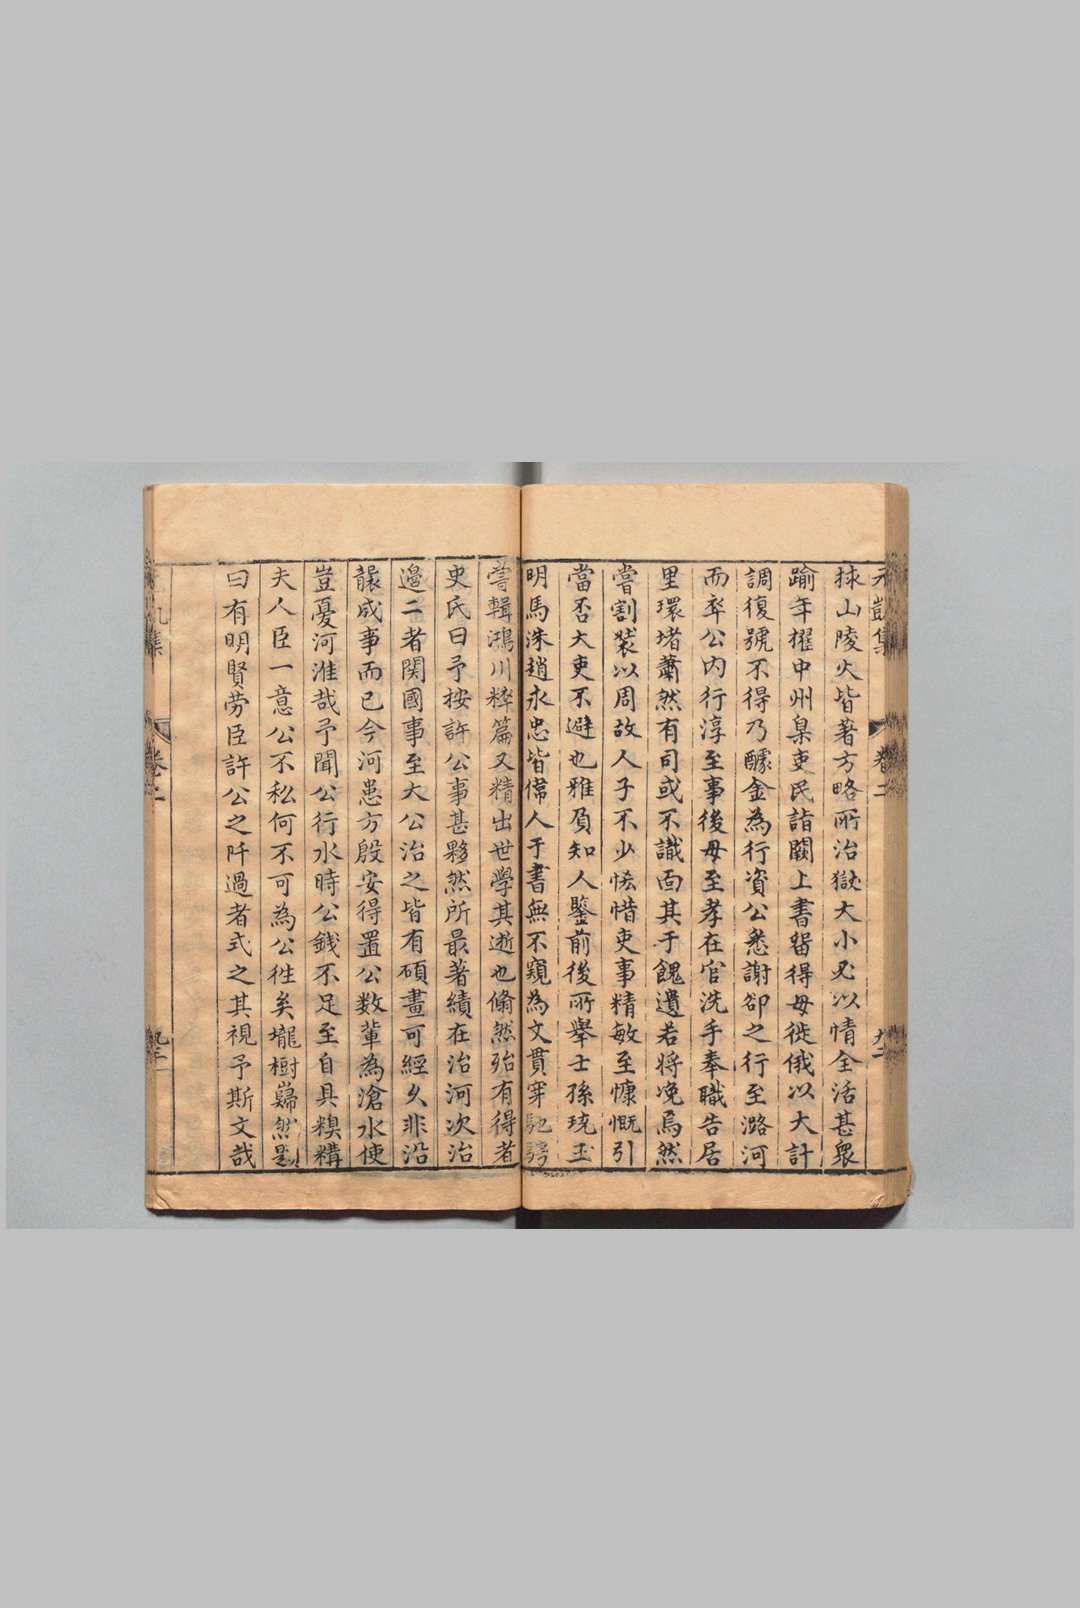 捄山陵火皆著方略所治獄大小必以情全活甚眾
踰年擢中州臬吏民詣闕上書留得毋徙俄以大計
調復號不得乃醵金為行資公悉謝卻之行至潞河
而卒公內行淳至事後母至孝在官洗手奉職告居
里環堵蕭然有司或不識面其于餽遺若將凂焉然
嘗割裝以周故人子不少恡惜吏事精敏至慷慨引
當否大吏不避也雅負知人鑒前後所舉士孫珫玉
明馬洙趙永忠皆偉人于書無不窺為文貫穿馳騁
嘗輯鴻川粹篇又精出世學其逝也翛然殆有得者
史氏曰予按許公事甚夥然所最著績在治河次治
邊二者關國事至大公治之皆有碩畫可經久非沿
襲成事而已今河患方殷安得置公數輩為滄水使
豈憂河淮哉予聞公行水時公錢不足至自具糗糒
夫人臣一意公不私何不可為公徃矣壠樹巋然題
曰有明賢勞臣許公之阡過者式之其視予斯文哉
集
卷二